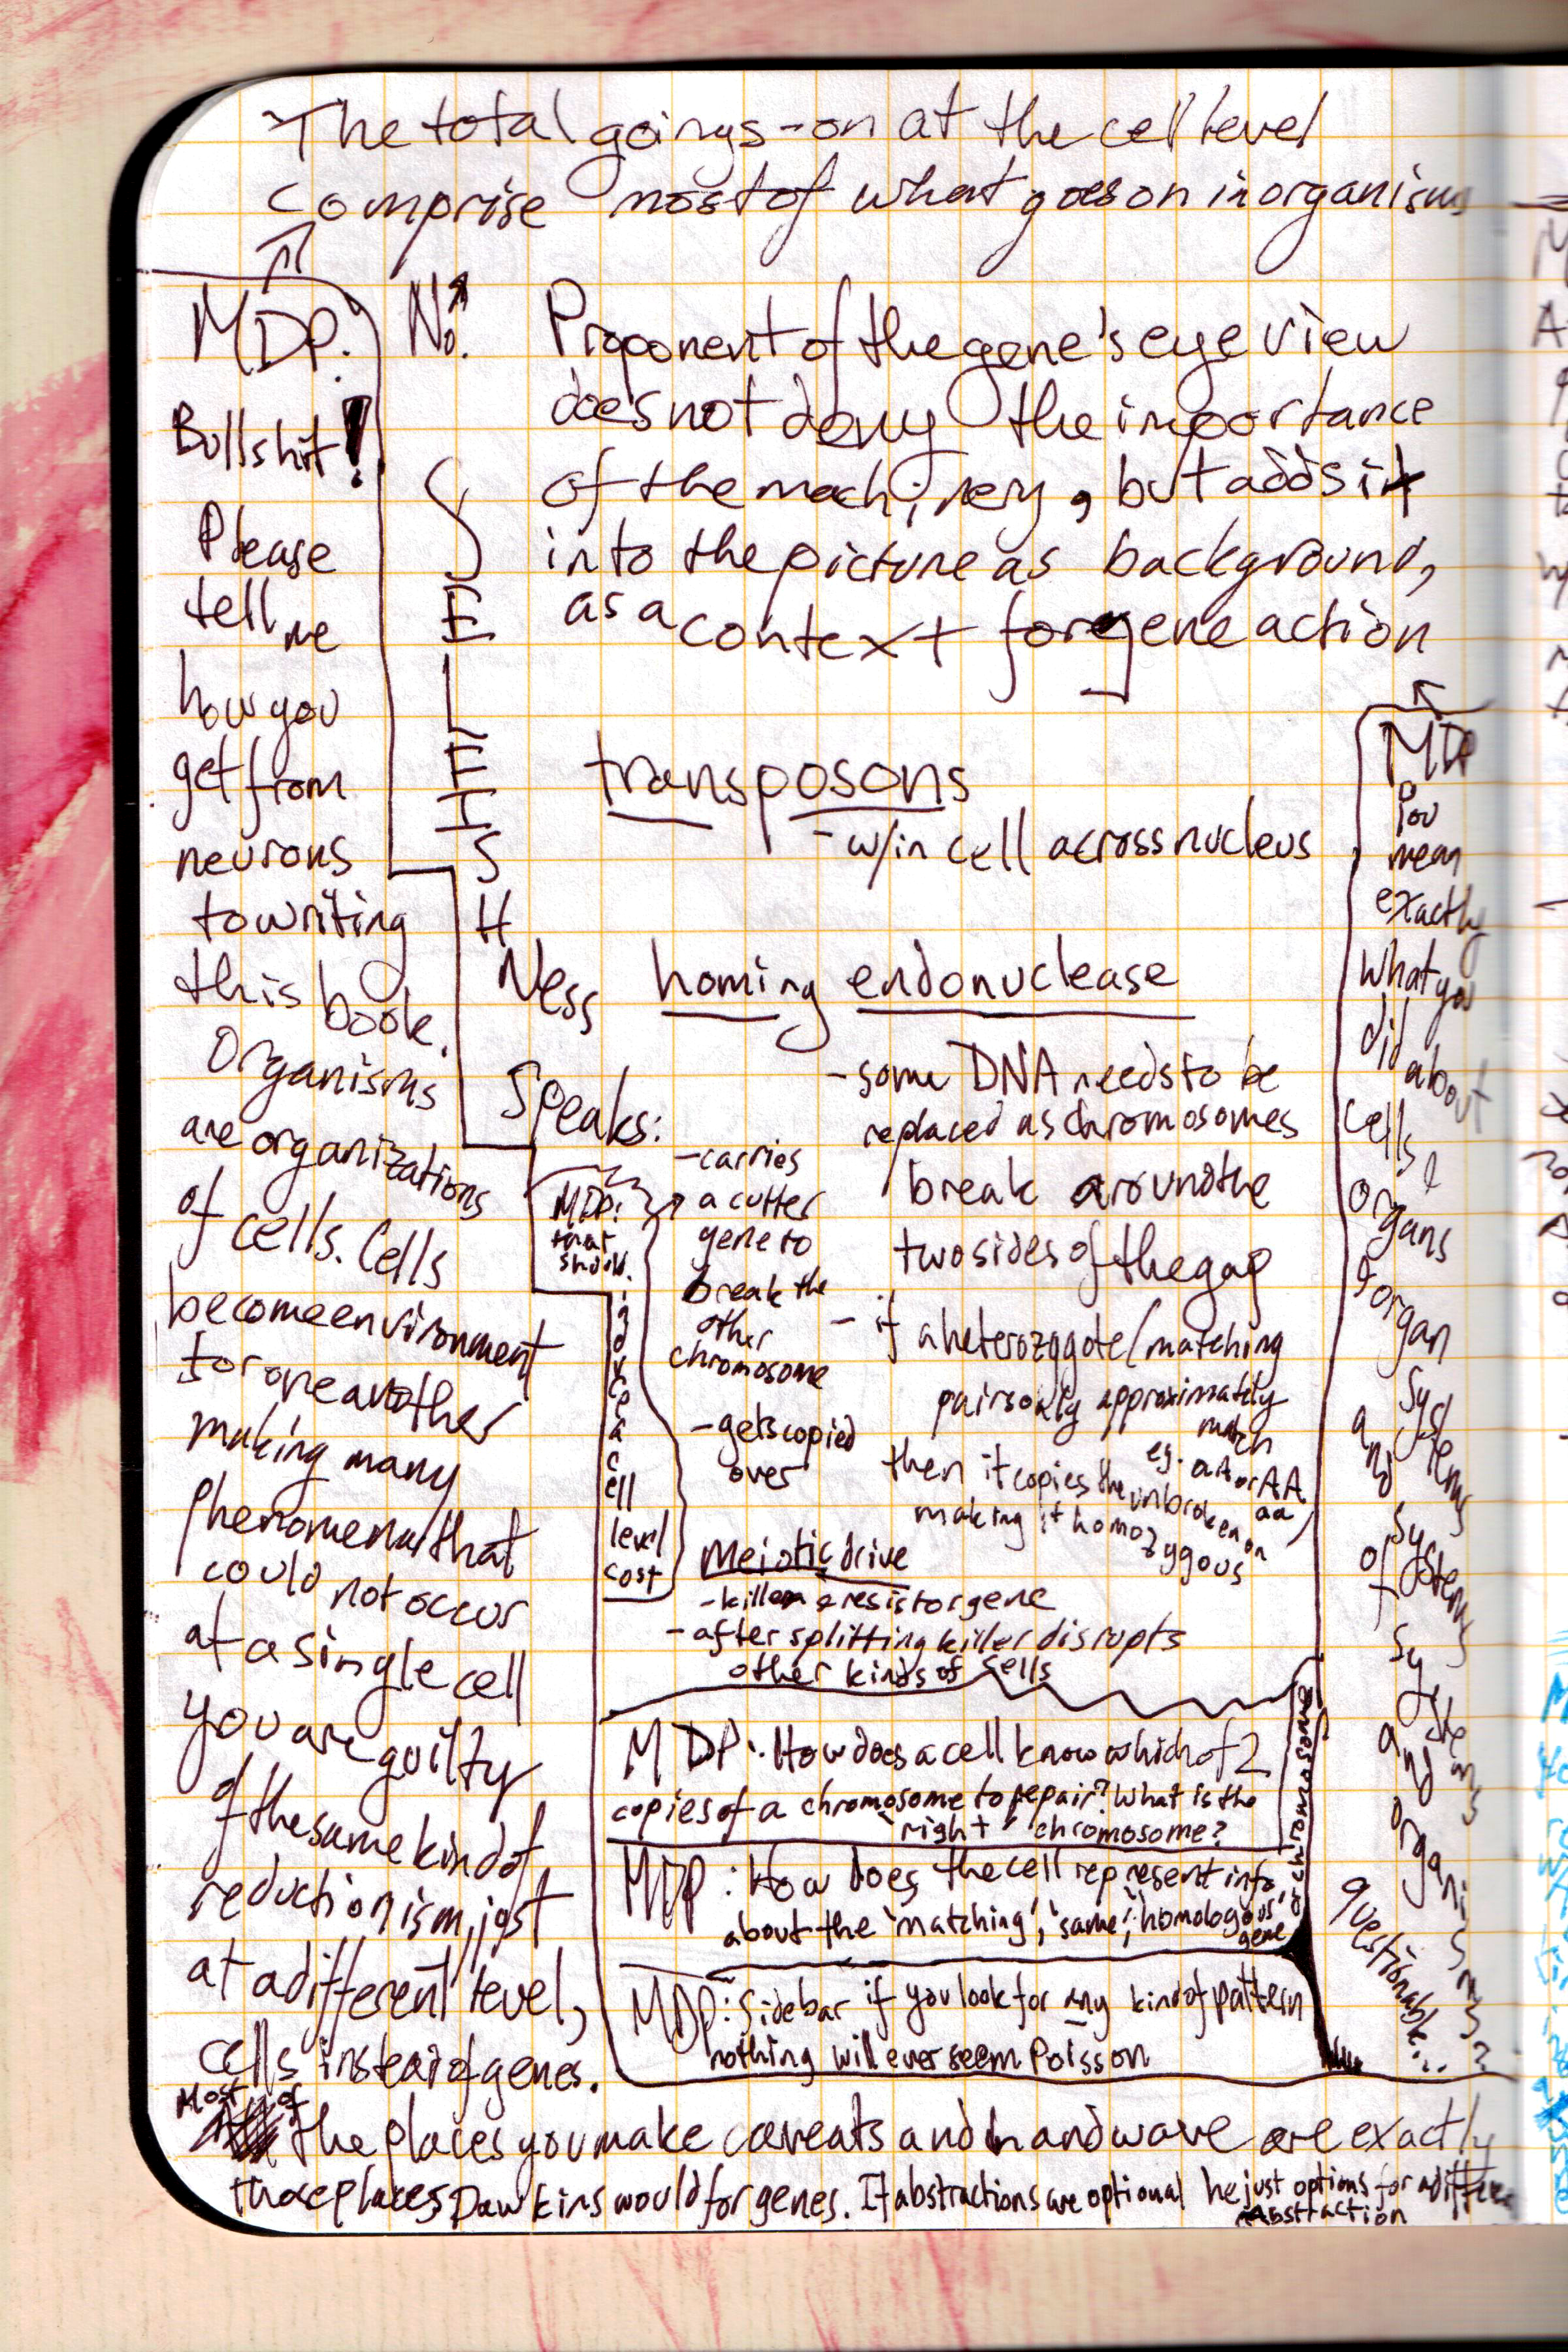 The total goings-on at the cell level
comprise most of what goes on in organisms
MDP:
Bullshit!
Please
tell me
how you
get from
neurons
to writing
this book.
Organisms
are organizations
of cells. Cells
become environment
for one another
making many
phenomena that
could not occur
at a single cell
you are guilty
of the same kind of
reductionism, just
at a different level,
cells instead of genes.
Most of
the places you make caveats and handwave are exactly
those places Dawkins would for genes. If abstractions are optional he just options for a different
abstraction
No!
S
E
L
F
I
S
H
Ness
Speaks:
Proponent of the gene's eye view
does not deny the importance
of the machinery, but adds it
into the picture as background,
as a context for gene action
transposons
- w/in cell across nucleus
homing endonuclease
- some DNA needs to be
replaced as chromosomes
break around the
two sides of the gap
- if a heterozygote/matching
pairs only approximately
match
eg. aA or AA
aa,
then it copies the unbroken on
making it homozygous
- carries
a cutter
gene to
break the
other
chromosome
- gets copied
over
MDP:
that
should
induce
a
cell
level
cost
meiotic drive
- killer & resistor gene
- after splitting killer disrupts
other kinds of cells
MDP: How does a cell know which of 2
copies of a chromosome to repair? What is the
"right" chromosome?
MDP: How does the cell represent info
about the 'matching', 'same', 'homologous'
gene
or chromosome
MDP: Sidebar if you look for any kind of pattern
nothing will ever seem Poisson
MDP
You
mean
exactly
what you
did about
cells &
organs
& organ
systems
and
systems
of
systems
and
organisms?
questionable...